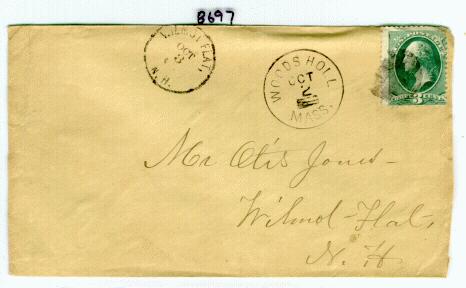 B697
WILMOT FLAT,
OCT
3
N.H.
WOODS HOLL
OCT
MASS.
U.S. POSTAGE
3
Mr Otis Jones
Wilmot Flat,
N. H.